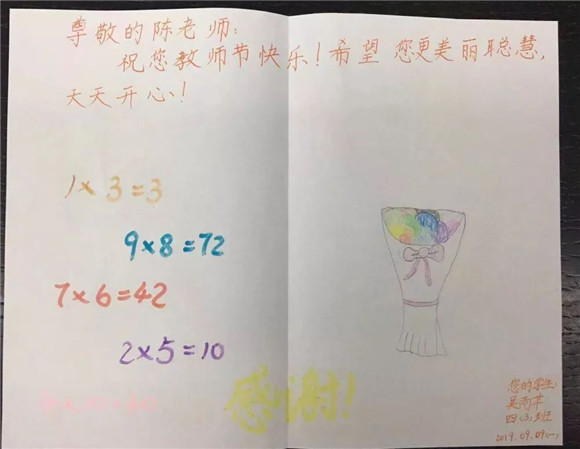 尊敬的陈老师：
祝您教师节快乐！希望您更美丽聪慧，
天天开心！
1×3=3
9×8=72
7×6=42
2×5=10
感谢！
您的学生：
四（3）班
2019.09.09（一）